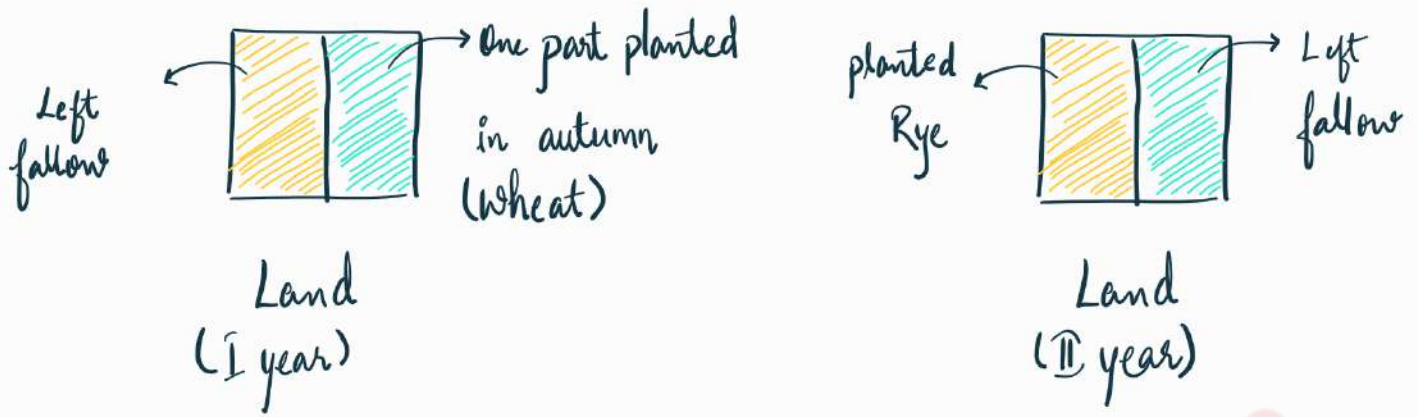 Left
fallow
One part planted
in autumn
(Wheat)
Land
(I year)
planted
Rye
Left
fallow
Land
(II year)